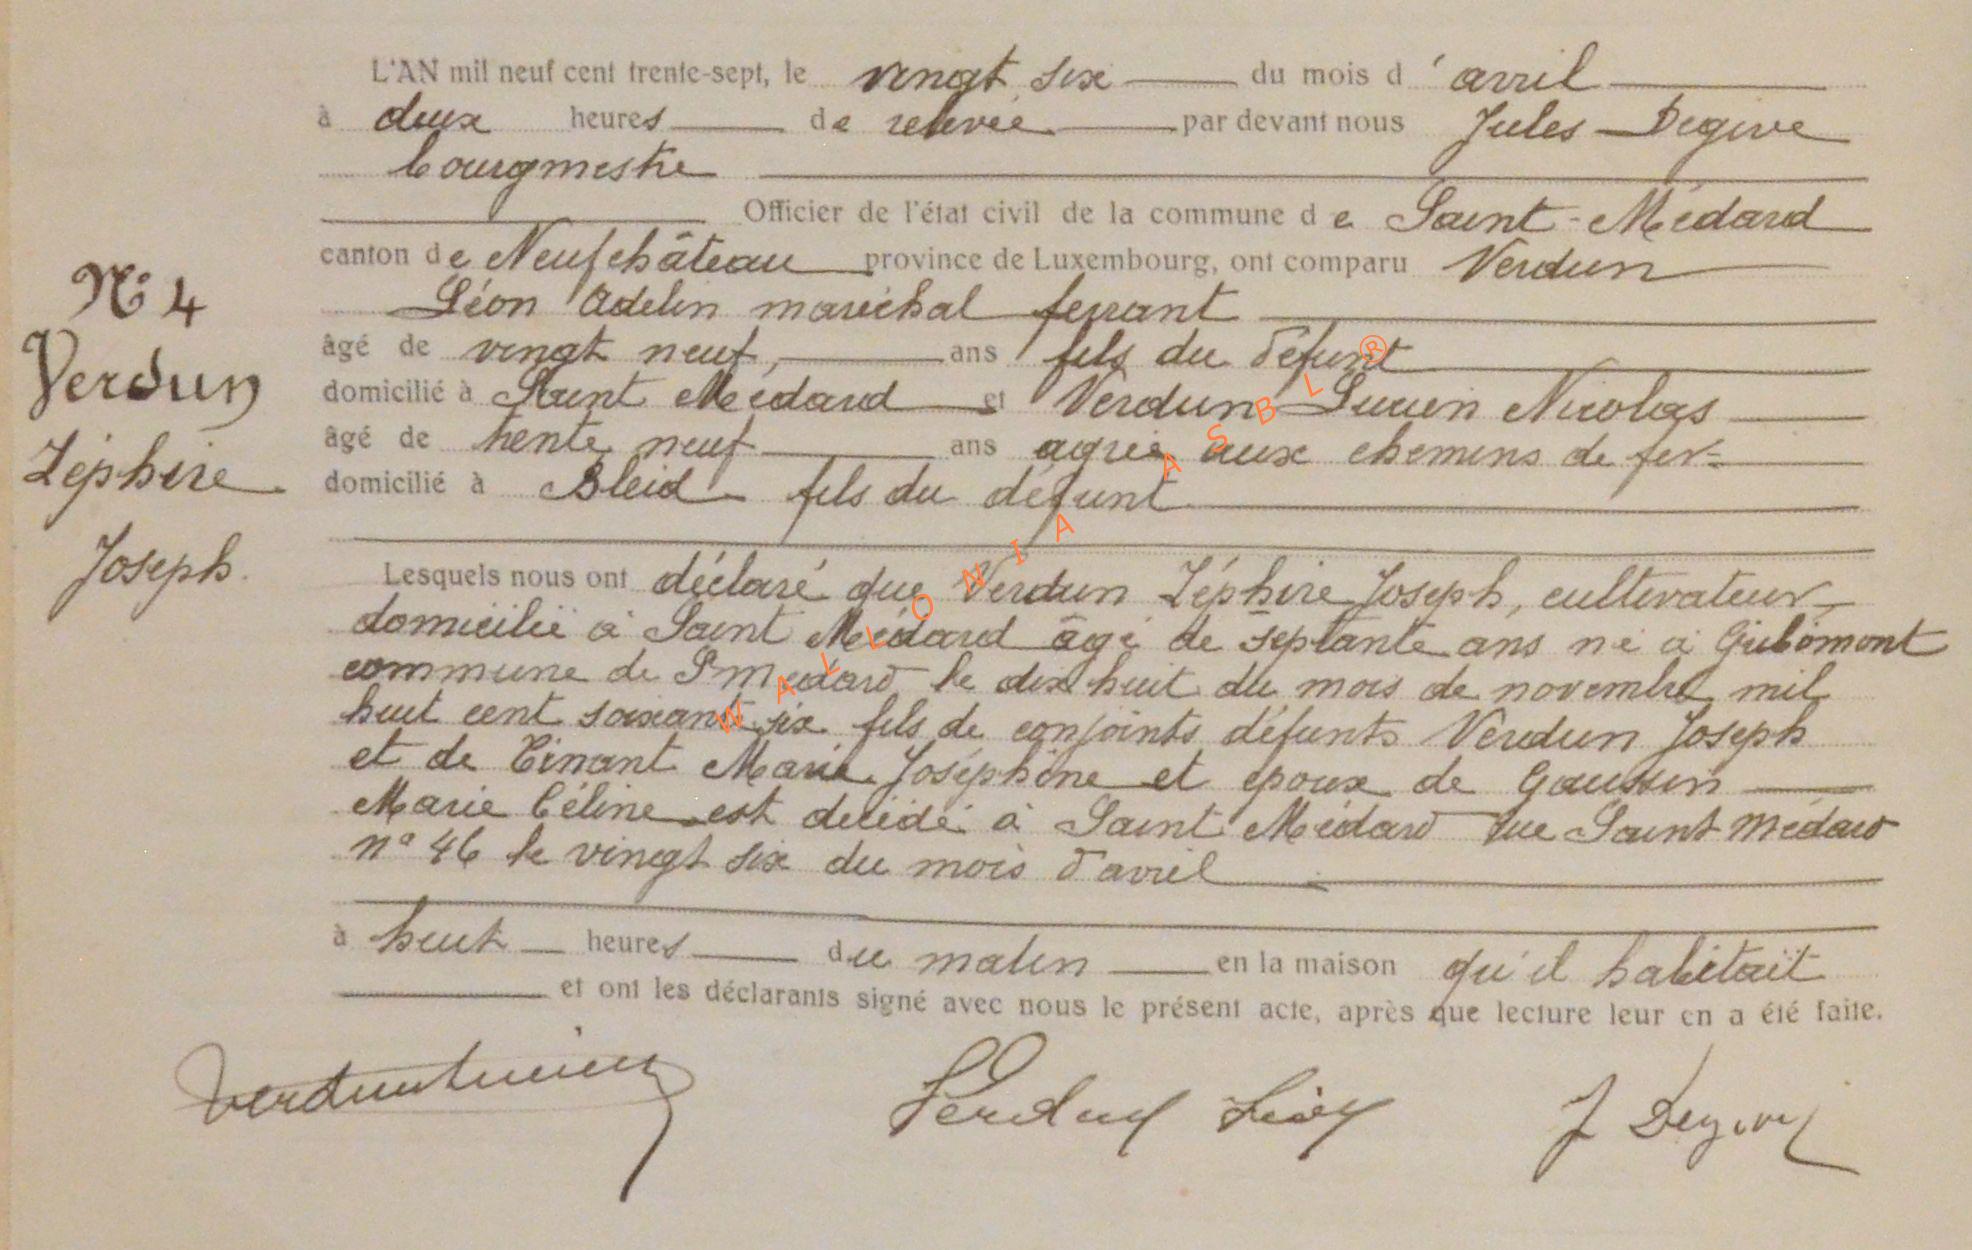 L'AN mil neuf cent trente-sept, le vingt six du mois d'avril
à deux heures de relevée par devant nous Jules Degive
bourgmestre
Officier de l'état civil de la commune de Saint-Médard
canton de Neufchâteau province de Luxembourg, ont comparu Verdun
Léon Adelin maréchal ferrant
âgé de vingt neuf ans fils du défunt
domicilié à Saint Médard et Verdun Lucien Nicolas
âgé de trente neuf ans agréé aux chemins de fer
domicilié à Bleid fils du défunt
N° 4
Verdun
Zéphire
Joseph.
Lesquels nous ont déclaré que Verdun Zéphire Joseph, cultivateur
domicilié à Saint Médard âgé de septante ans né à Gribomont
commune de St Médard le dix huit du mois de novembre mil
huit cent soixante six fils de conjoints défunts Verdun Joseph
et de Tinant Marie Joséphine et époux de Gaussin
Marie Céline est décédé à Saint Médard rue Saint Médard
n° 46 le vingt six du mois d'avril
à huit heures du matin en la maison qu'il habitait
et ont les déclarants signé avec nous le présent acte, après que lecture leur en a été faite.
Verdun Lucien Verdun Léon J Degive
WALLONIA ASBL ®